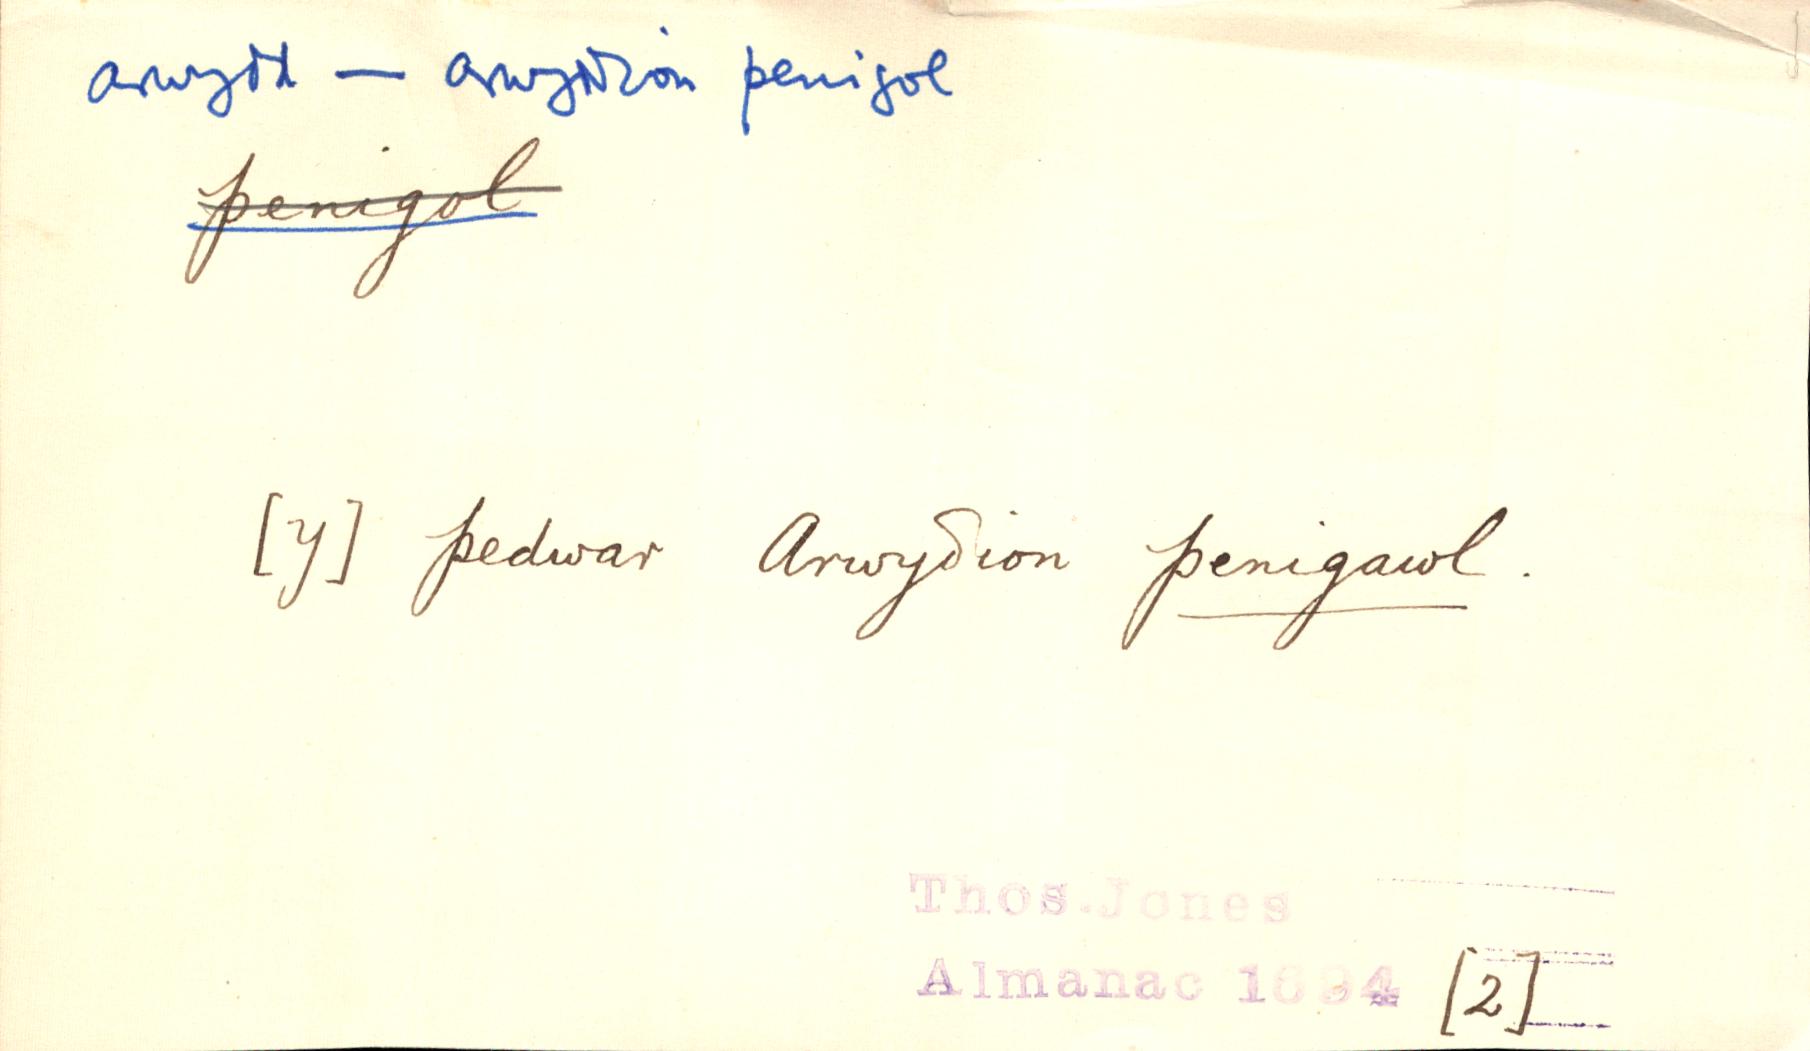 arwydd — arwyddion penigol
penigol
[y] pedwar Arwyδion penigawl.
Thos. Jones
Almanac 1694 [2]